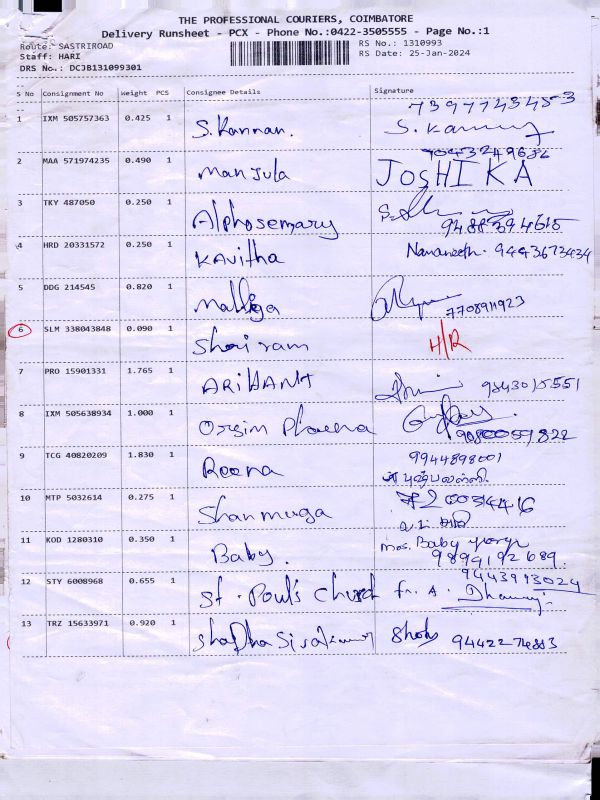 THE PROFESSIONAL COURIERS, COIMBATORE
Delivery Runsheet - PCX - Phone No.:0422-3505555 - Page No.:1
Route: SASTRIROAD RS No.: 1310993
Staff: HARI RS Date: 25-Jan-2024
DRS No.: DCJB131099301
S No Consignment No Weight PCS Consignee Details Signature
7397743453
1 IXM 505757363 0.425 1 S. Kannan. S. Kannan
2 MAA 571974235 0.490 1 Manjula JOSHIKA
3 TKY 487050 0.250 1 Alphosemary
9488394615
4 HRD 20331572 0.250 1 Kavitha Navaneeth. 9443673434
5 DDG 214545 0.820 1 Malliga 7708911923
6 SLM 338043848 0.090 1 Shri ram H/R
7 PRO 15901331 1.765 1 ARIHANT 9843015551
8 IXM 505638934 1.000 1 Orgim Pharma
9 TCG 40820209 1.830 1 Reena 9944898001
10 MTP 5032614 0.275 1 Shanmuga
11 KOD 1280310 0.350 1 Baby. Mrs. Baby
9894192689
9443993024
12 STY 6008968 0.655 1 St. Poul's Church fr. A.
13 TRZ 15633971 0.920 1 Shobha Sivakumar Shobs 9442274883